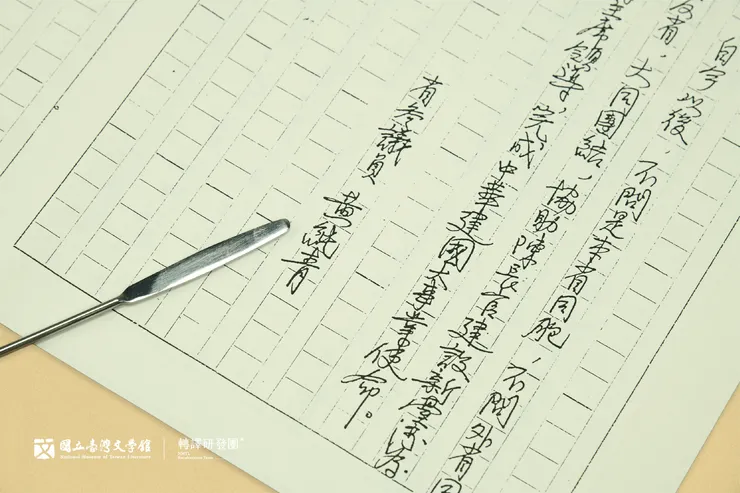 自今以後，不問是本省同胞，不問外省同
大同團結，協助陳長官建設新臺灣
主席領導，完成中華建國大事業使命。
省參議員 黃純青
國立臺灣文學館
National Museum of Taiwan Literature
轉譯研發團